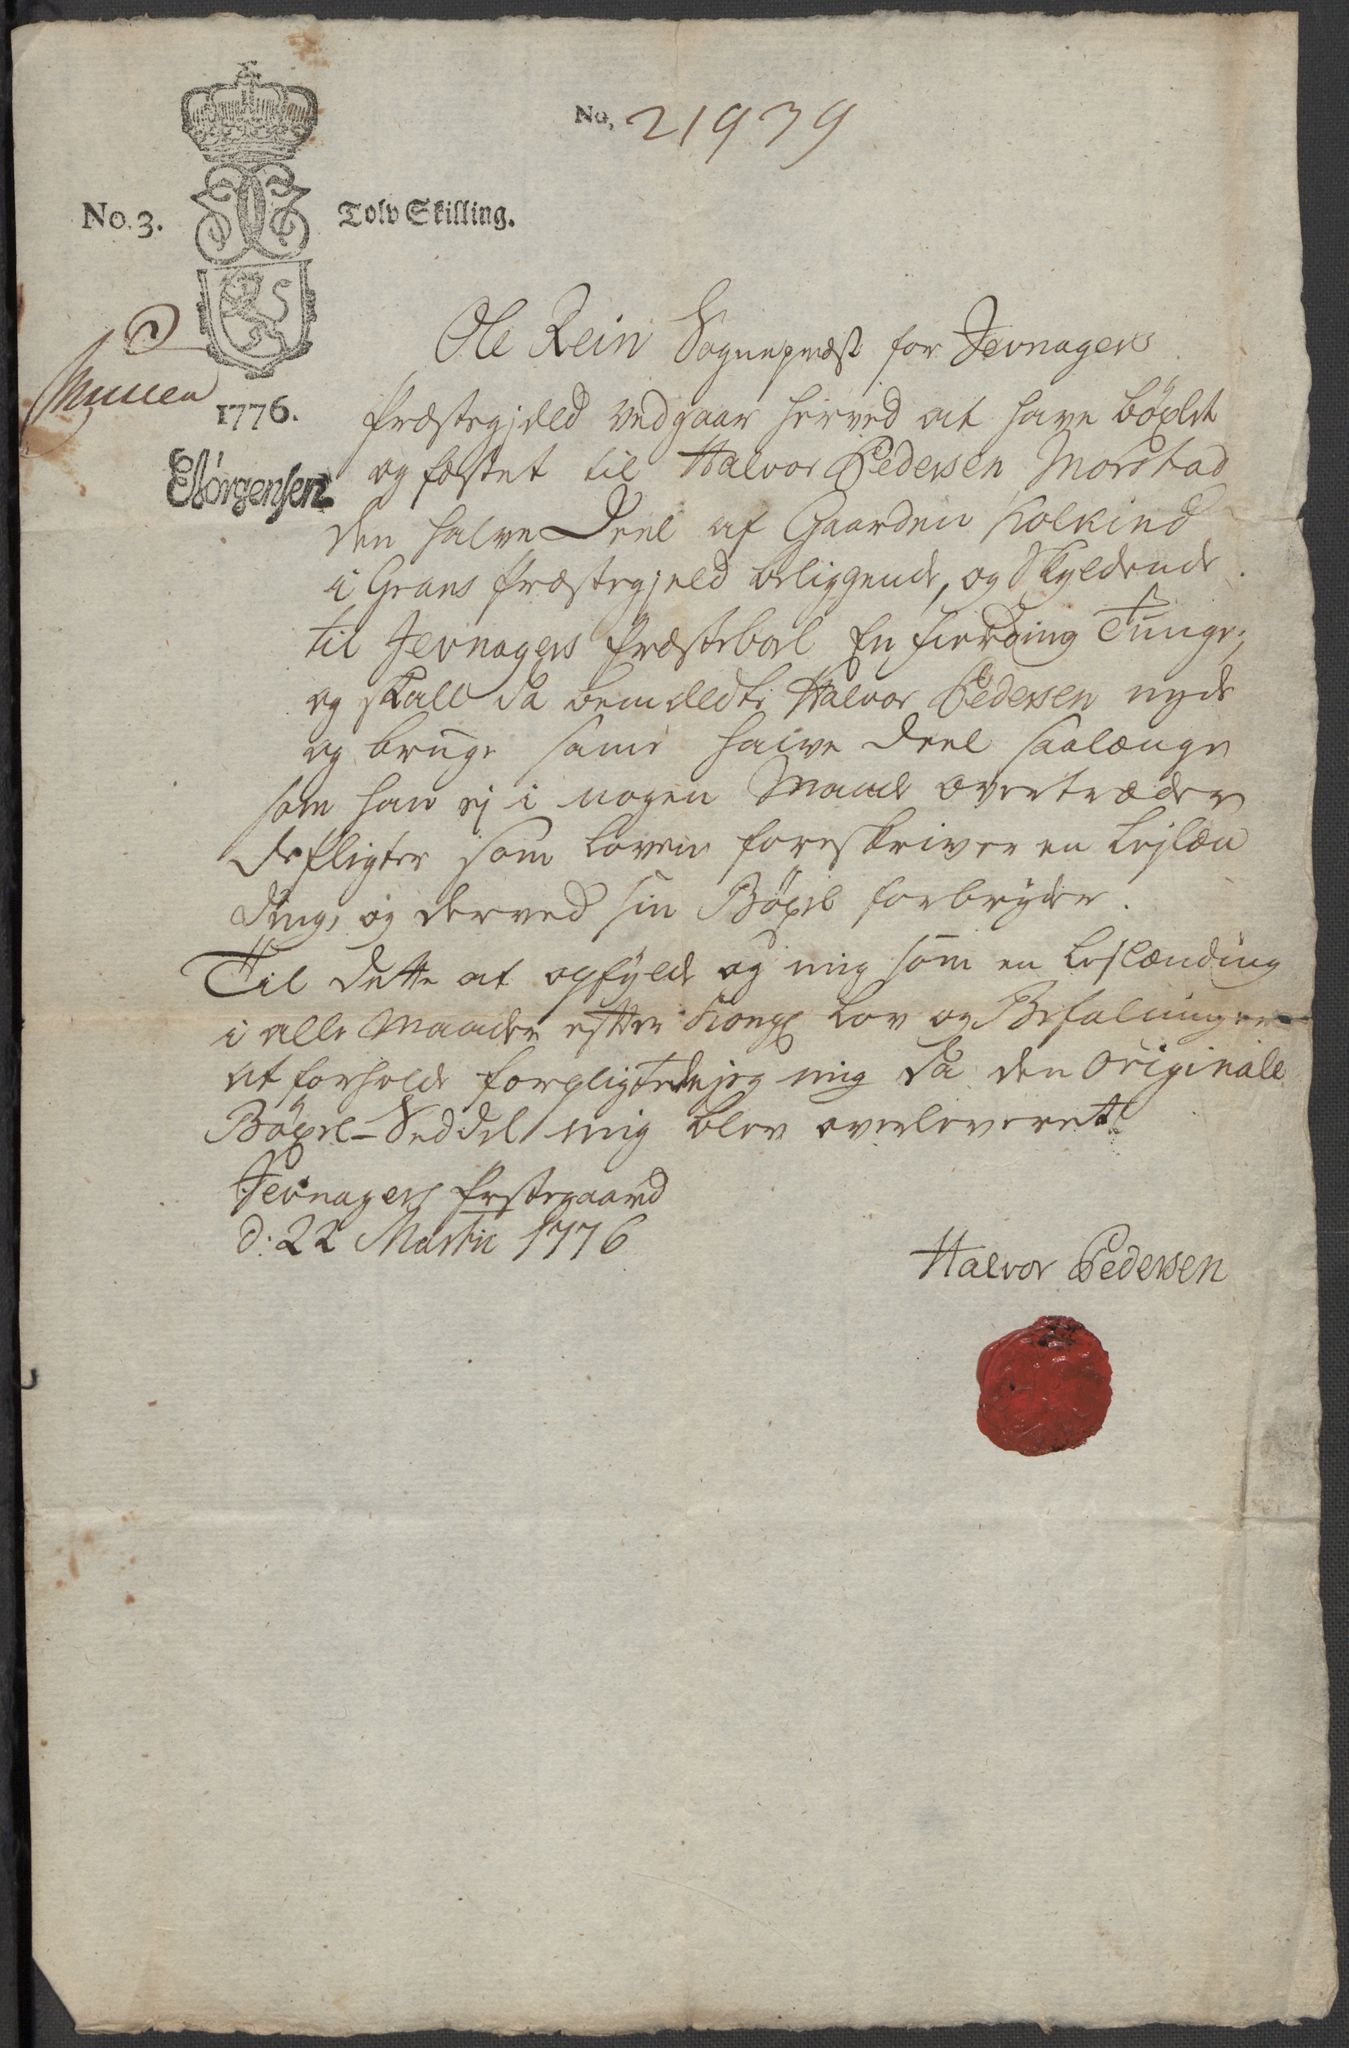 No. 21939
No. 3. Tolv Skilling.
1776.
EJørgensen
Ole Rein Sognepræst for Jevnagers
Præstegjeld vedgaar herved at have böxlet
og fæstet til Halvor Pedersen Morstad
den halve Deel af Gaarden Kolkind
i Grans Præstegjeld beliggende, og Skyldende
til Jevnagers Præstebol En Fierding Tunge;
og skall da bemeldte Halvor Pedersen nyde
og bruge samme halve Deel saalænge
som han ej i nogen Maade overtræder
de Pligter som Loven foreskriver en Lejlæn
ding, og derved sin Böxel forbryder.
Til dette at opfylde og mig som en Lejlænding
i alle Maader efter Kongl Lov og Befalinger
at forholde forpligtede jeg mig da den Originale
Böxel-Seddel mig blev overleveret
Jevnagers Præstegaard
d: 22 Martii 1776
Halvor Pedersen